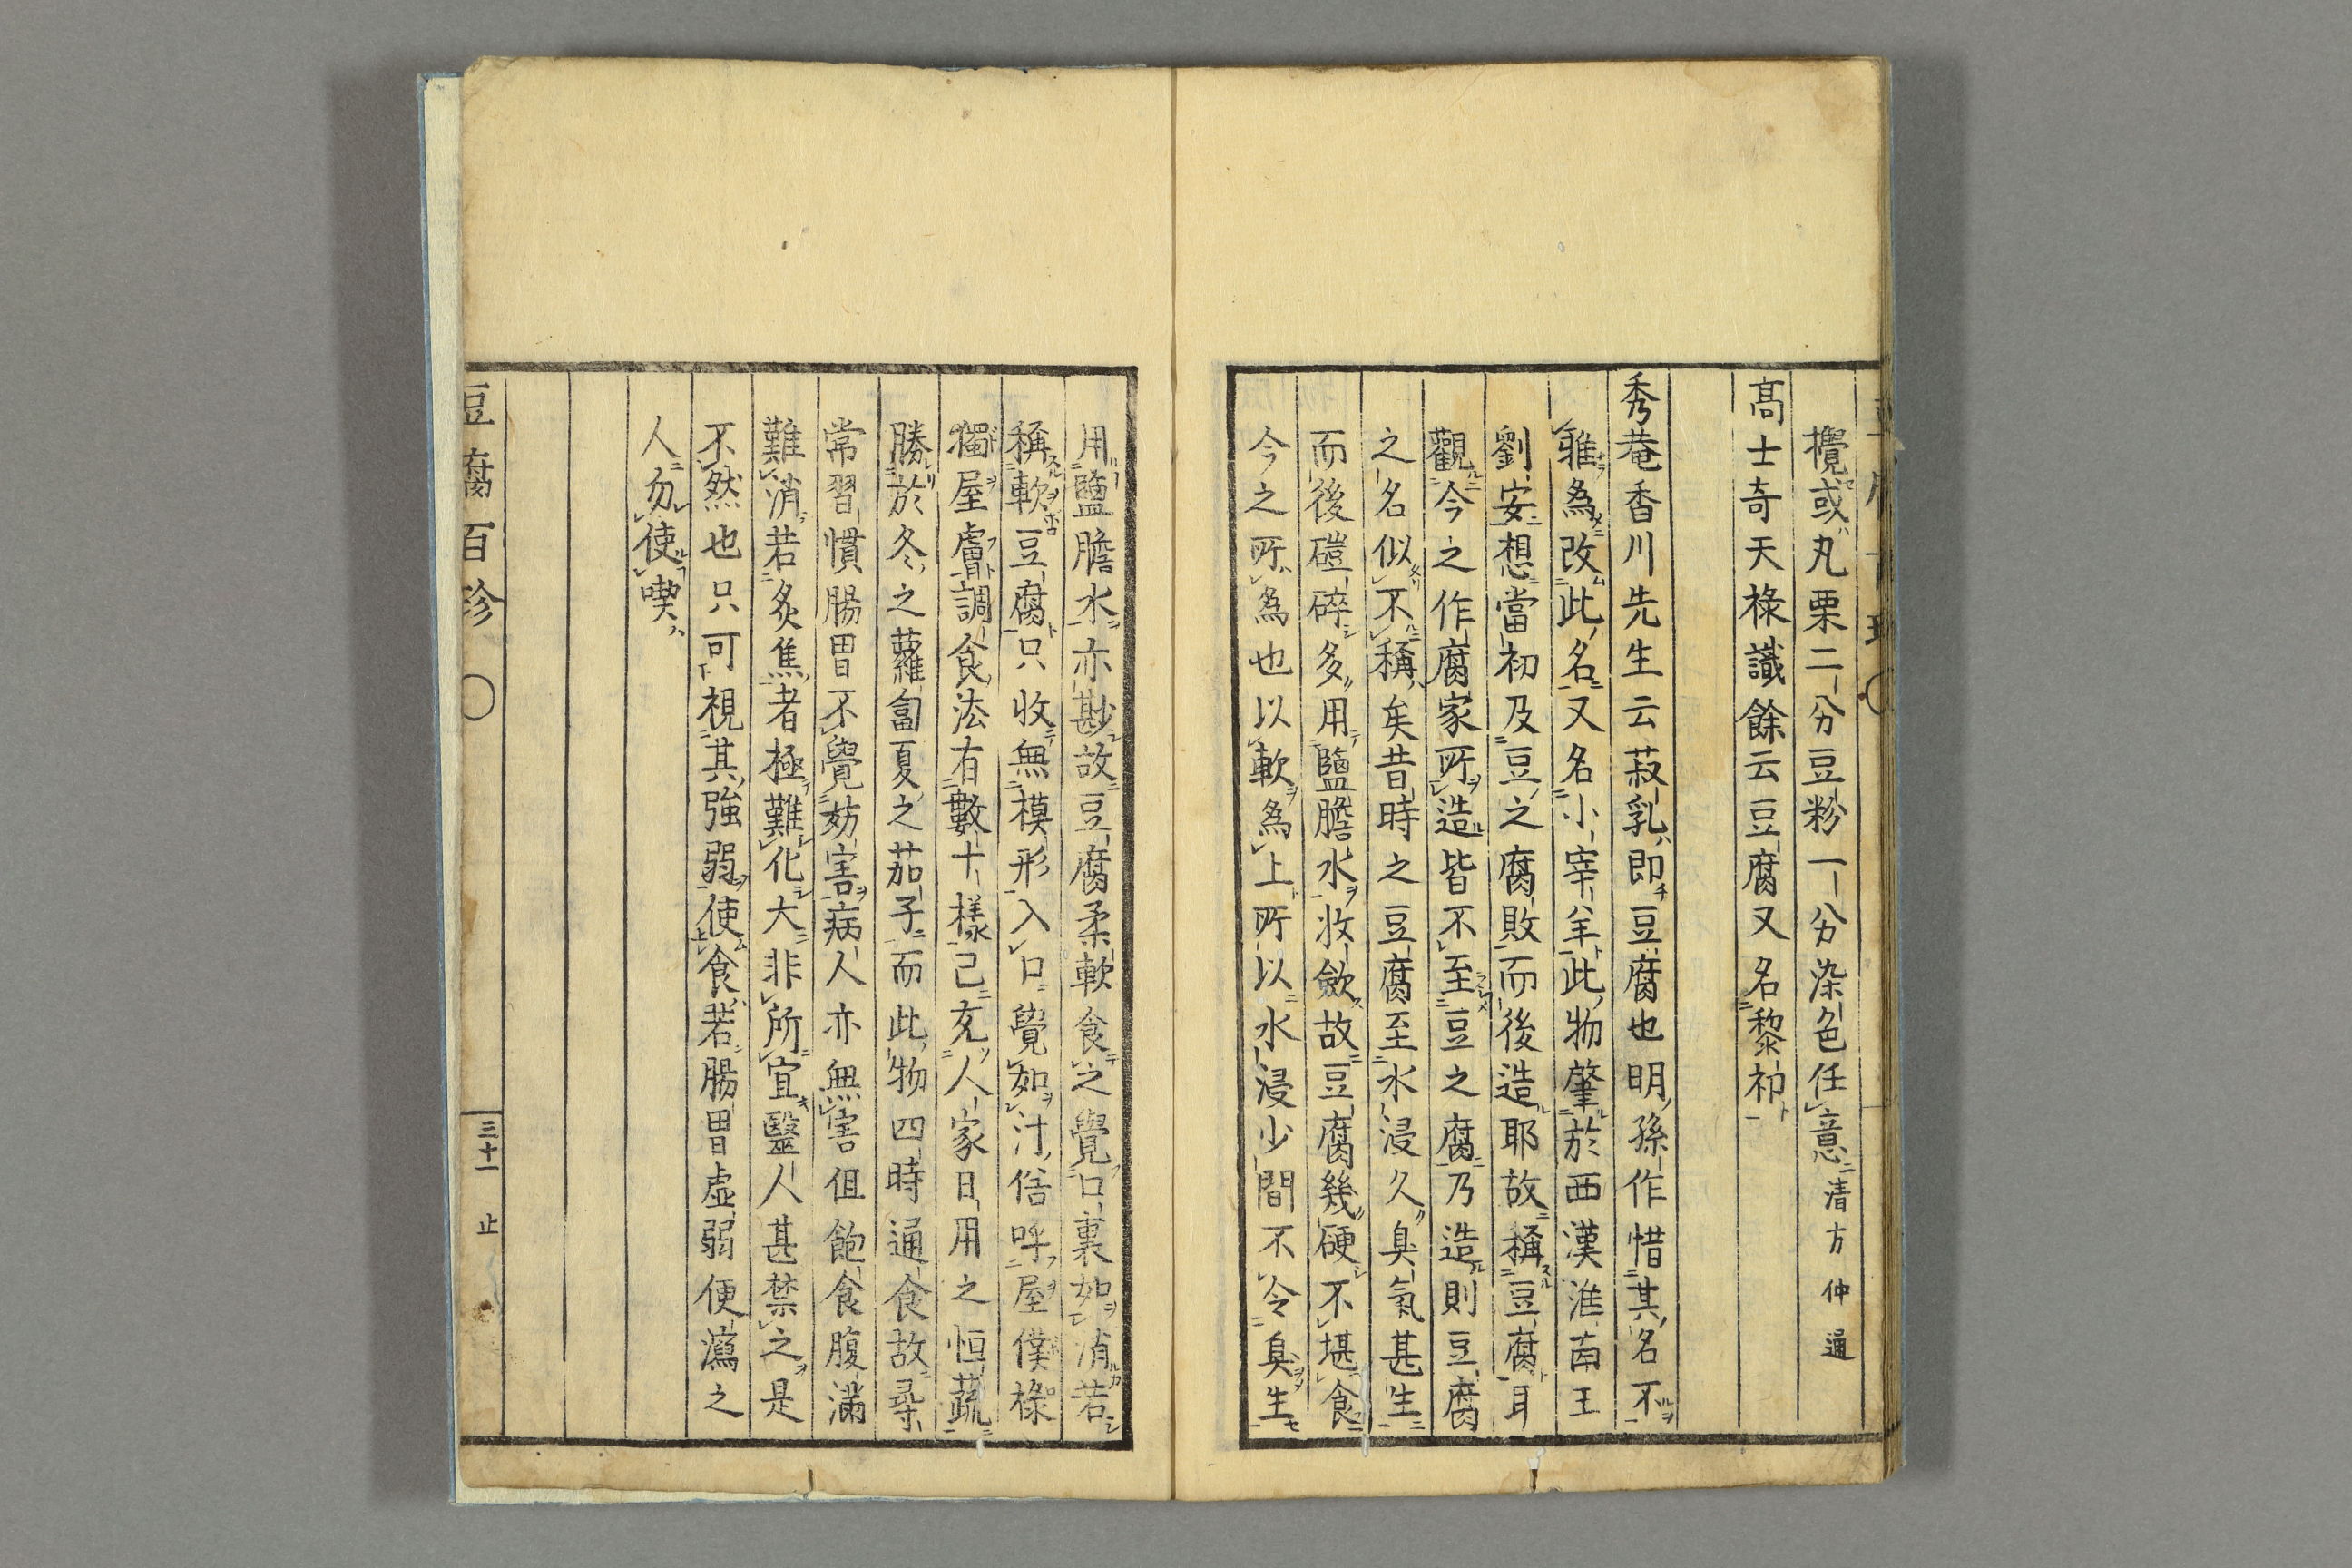 攪或丸栗二分豆粉一分染色任意清方仲通
高士奇天祿識餘云豆腐又名黎祁
秀菴香川先生云菽乳即豆腐也明孫作惜其名不
雅為改此名又名小宰羊此物肇於西漢淮南王
劉安想當初及豆之腐敗而後造耶故稱豆腐耳
觀今之作腐家所造皆不至豆之腐乃造則豆腐
之名似不稱矣昔時之豆腐至水浸久臭氣甚生
而後磑碎多用鹽膽水收斂故豆腐幾硬不堪食
今之所為也以軟為上所以水浸少間不令臭生
用鹽膽水亦尠故豆腐柔軟食之覺口裏如消若
稱軟豆腐只收無模形入口覺如汁俗呼屋僕祿
獨屋膚調食法有數十樣已充人家日用之恒蔬
勝於冬之蘿蔔夏之茄子而此物四時通食故尋
常習慣腸胃不覺妨害病人亦無害但飽食腹滿
難消若炙焦者極難化大非所宜醫人甚禁之是
不然也只可視其強弱使食若腸胃虛弱便瀉之
人勿使喫
豆腐百珍 〇 三十一 止